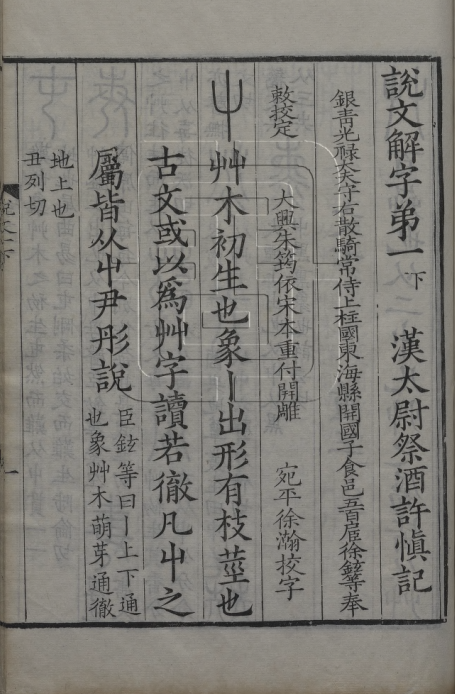 說文解字弟一下 漢太尉祭酒許慎記
銀青光祿大夫守右散騎常侍上柱國東海縣開國子食邑五百戶徐鉉等奉
敕挍定 大興朱筠依宋本重付開雕 宛平徐瀚挍字
屮艸木初生也象丨出形有枝莖也
古文或以爲艸字讀若徹凡屮之
屬皆从屮尹彤說臣鉉等曰丨上下通
也象艸木萌芽通徹
地上也
丑列切
說文一下
一